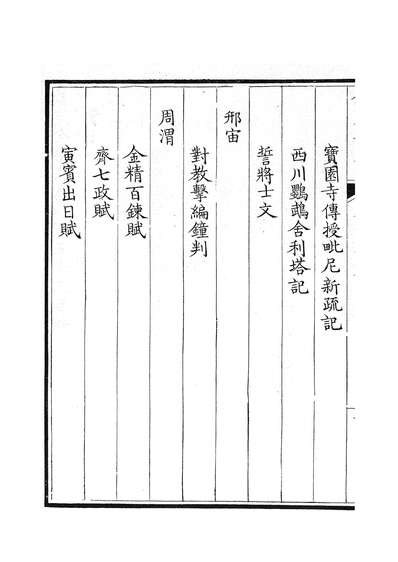 寶園寺傳授毗尼新疏記
西川鸚鵡舍利塔記
誓將士文
邢宙
對教擊編鐘判
周渭
金精百鍊賦
齊七政賦
寅賓出日賦